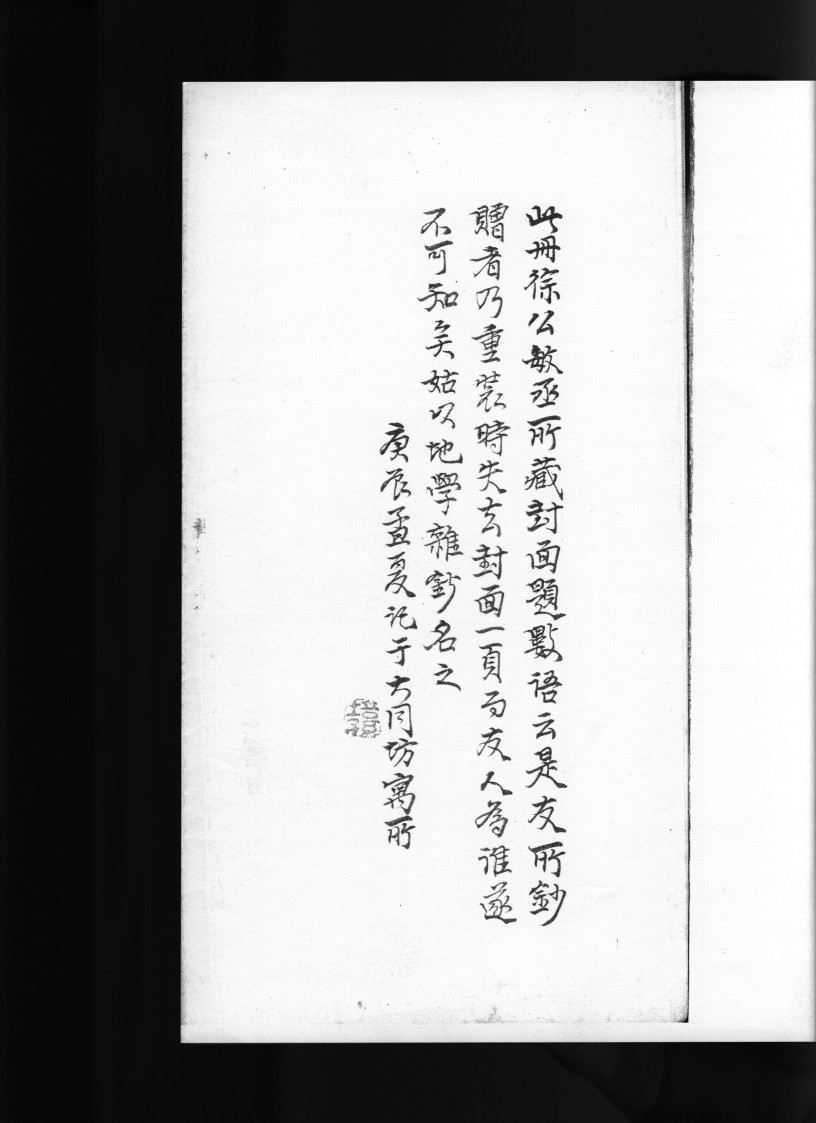 此冊徐公敏丞所藏封面題數語云是友所鈔
贈者乃重裝時失去封面一頁而友人為誰遂
不可知矣姑以地學雜鈔名之
庚辰孟夏記于大同坊寓所